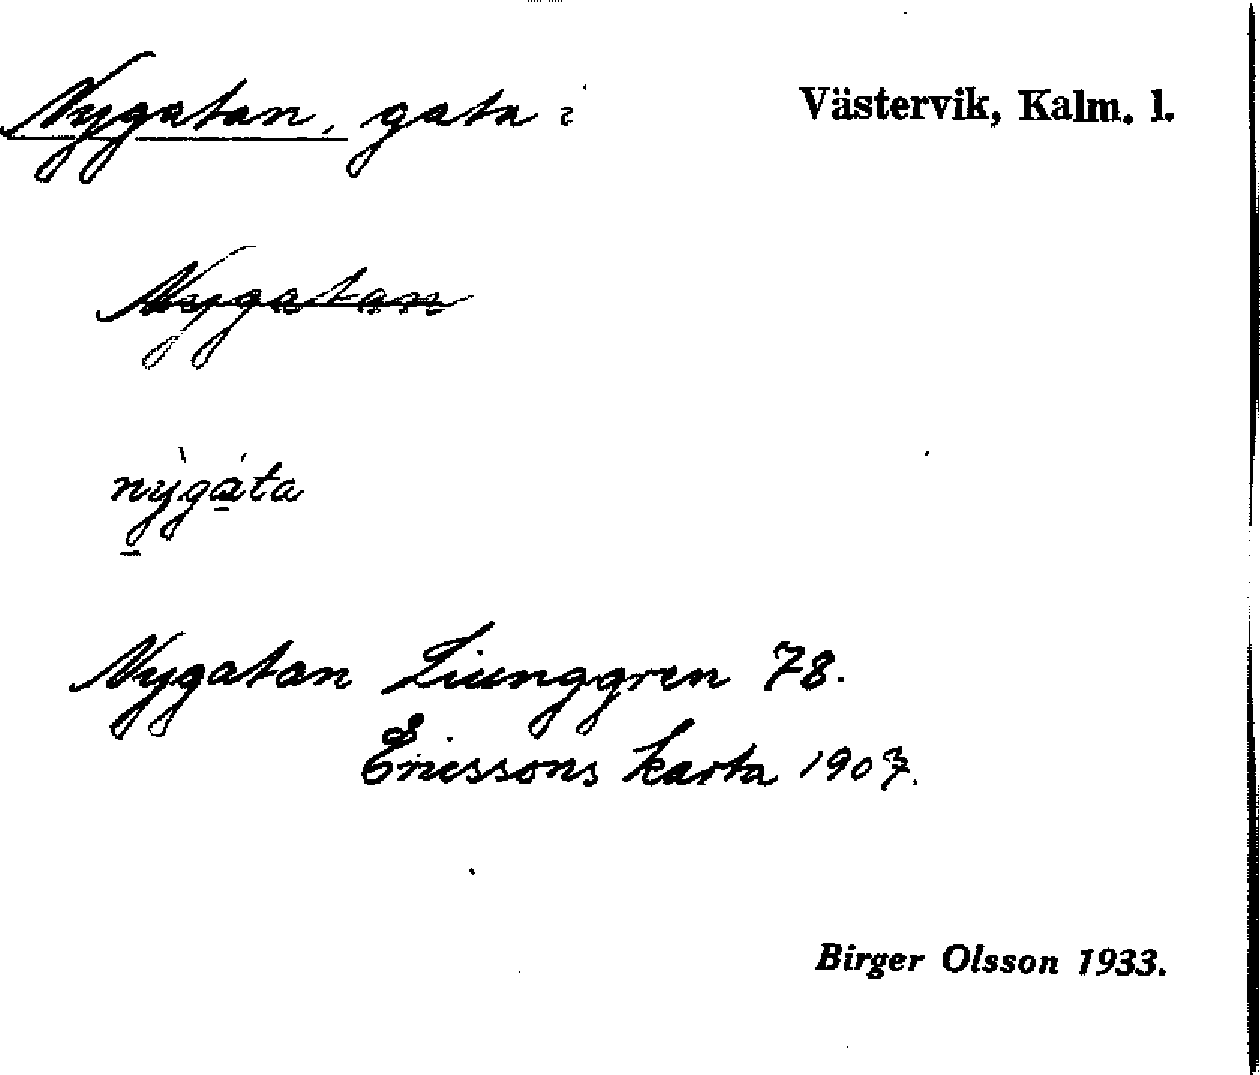 Nygatan, gata i Västervik, Kalm. l.
Nygatan
nỳgáta
Nygatan Liunggren 78.
Ericssons karta 1907.
Birger Olsson 1933.